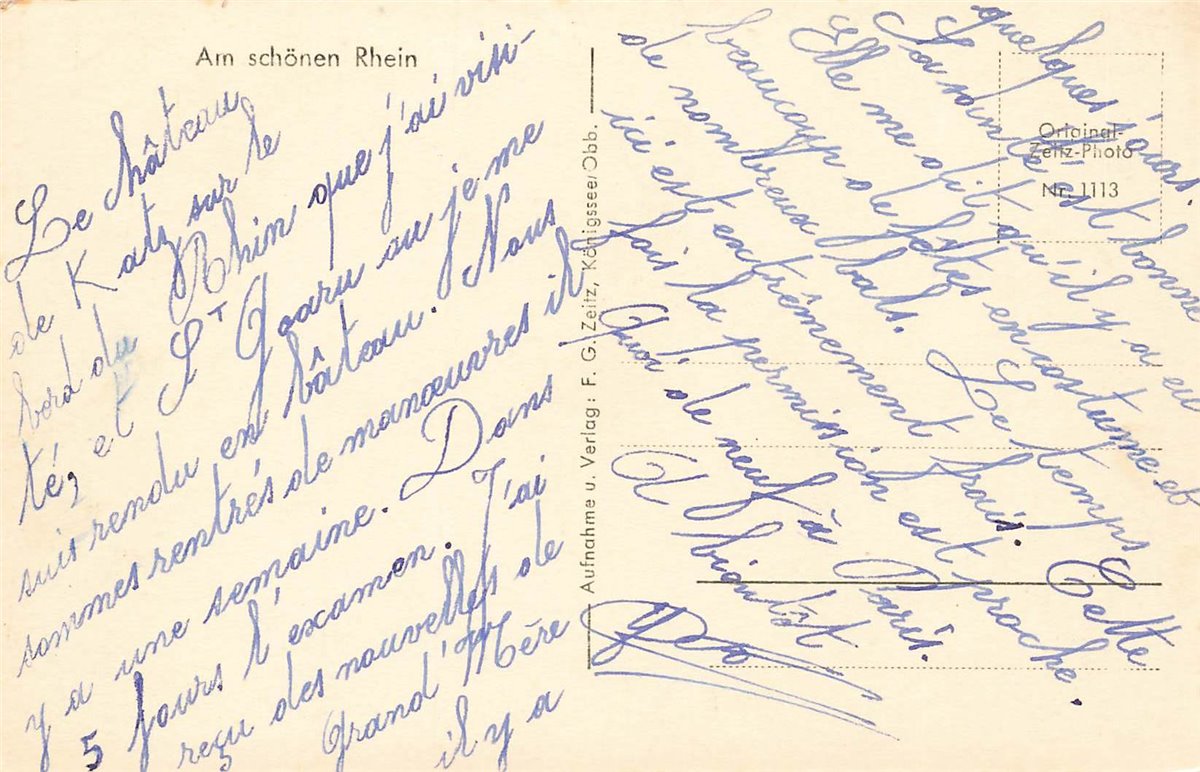 Am schönen Rhein
Le château
de Katz sur le
bord du Rhin que j'ai visi-
té, et St Goaru au je me
suis rendu en bâteau. Nous
sommes rentrés de manœuvres il
y a une semaine. Dans
5 jours l'examen. J'ai
reçu des nouvelles de
Grand'Mère
il y a
quelques jours
Sa santé est bonne
Elle me dit qu'il y a eu
beaucoup de fêtes en costume et
de nombreux bals. Le temps
ici est entrémement frais. Cette
fois la permission est proche.
Quoi de neuf à Paris.
A bientôt
Aufnahme u. Verlag: F. G. Zeitz, Königssee/Obb.
Original-
Zeitz-Photo
Nr. 1113